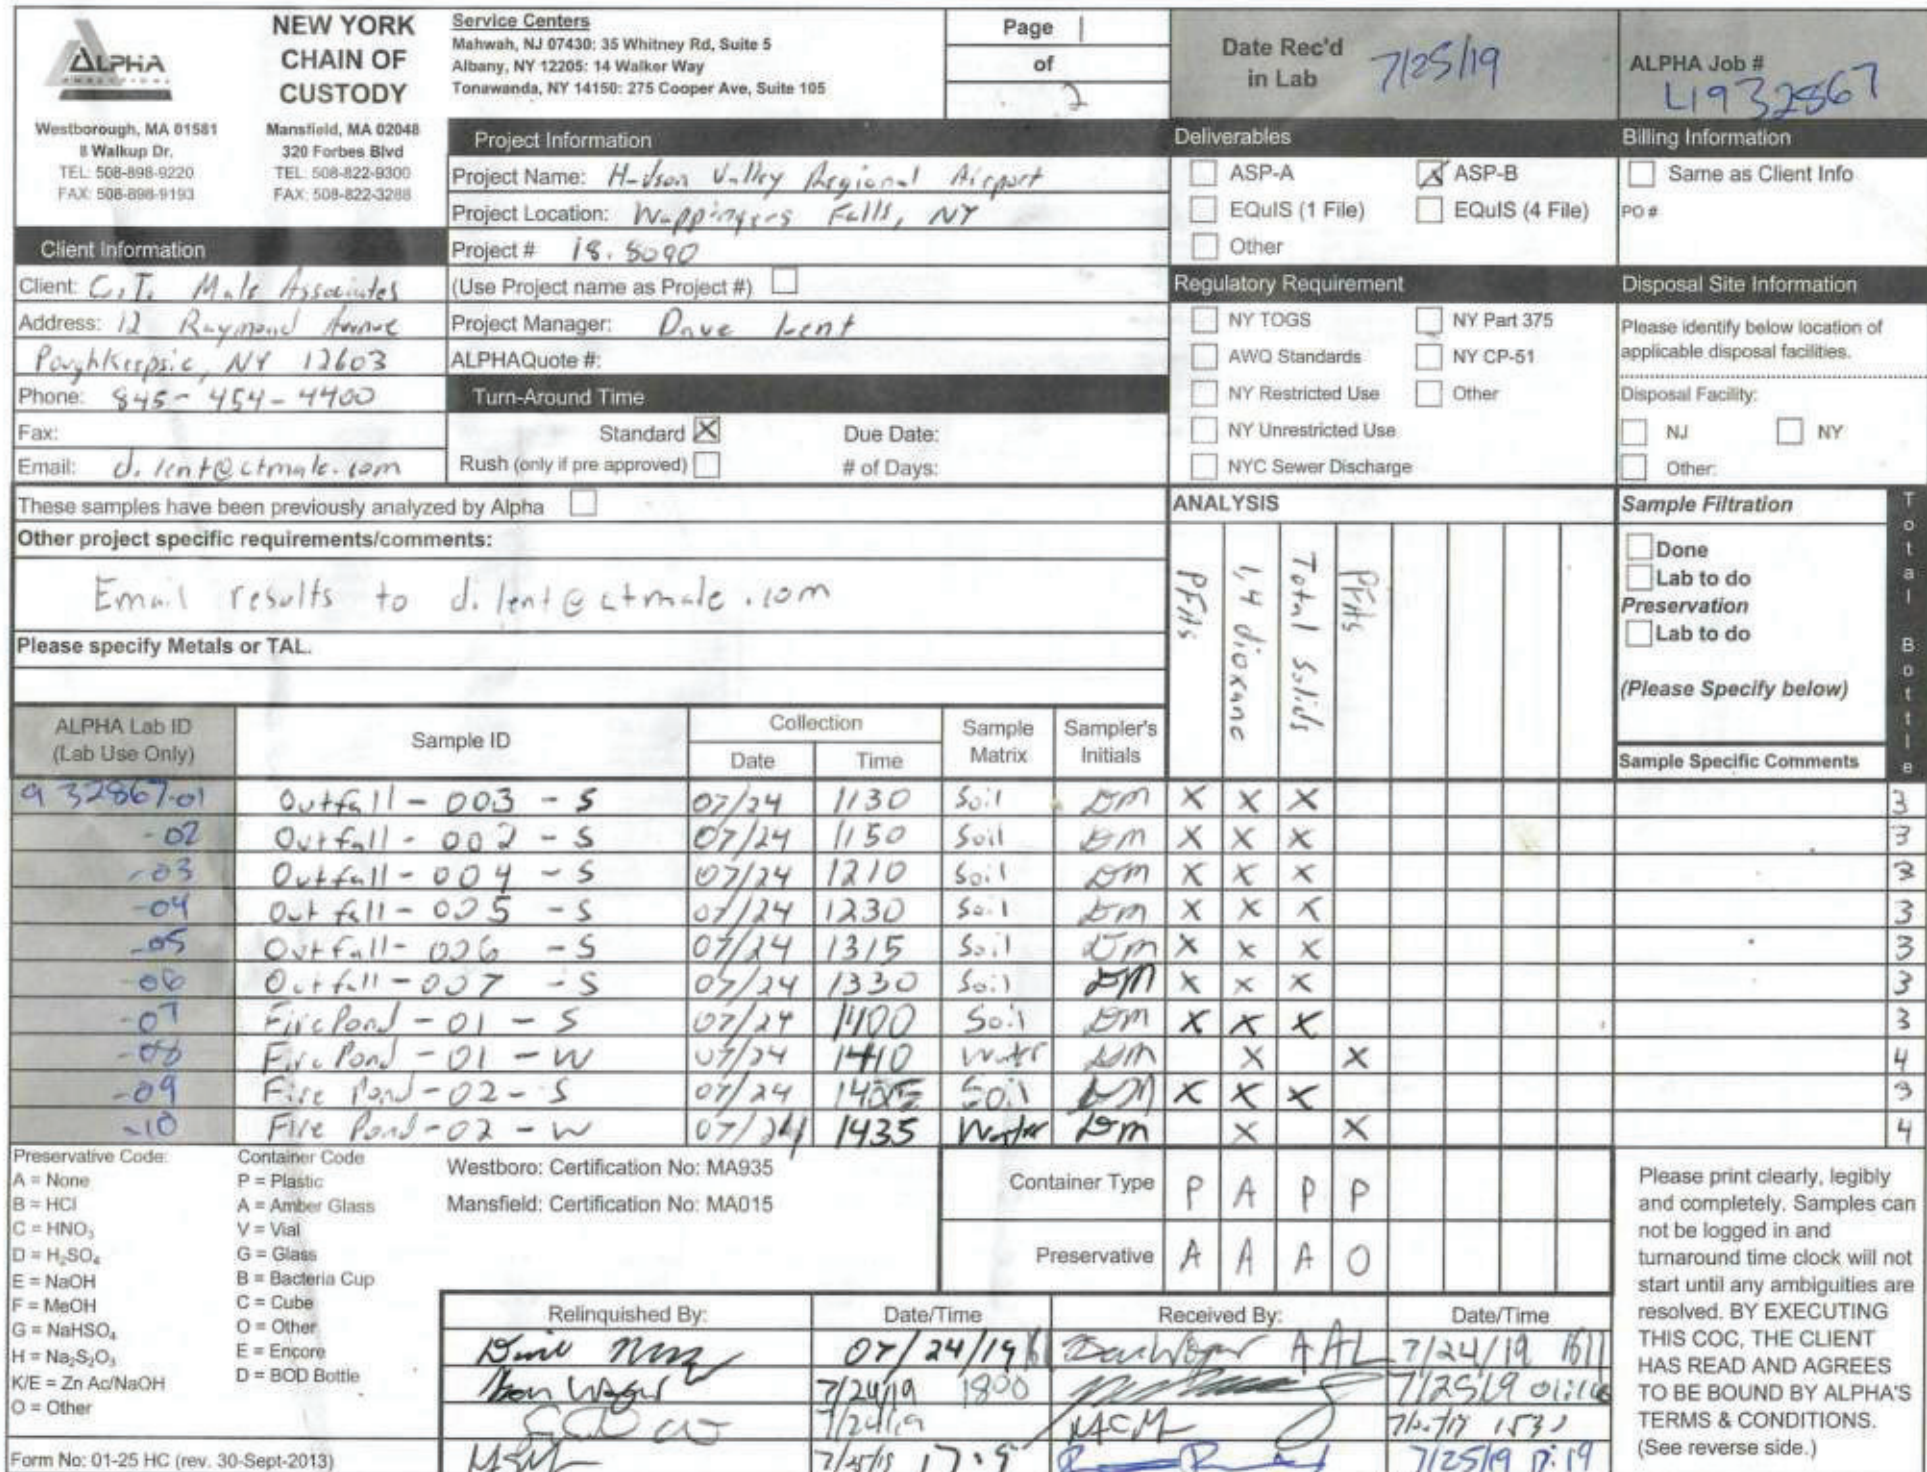 ALPHA
ANALYTICAL
NEW YORK
CHAIN OF
CUSTODY
Westborough, MA 01581
8 Walkup Dr.
TEL: 508-898-9220
FAX: 508-898-9193
Mansfield, MA 02048
320 Forbes Blvd
TEL: 508-822-9300
FAX: 508-822-3288
Service Centers
Mahwah, NJ 07430: 35 Whitney Rd, Suite 5
Albany, NY 12205: 14 Walker Way
Tonawanda, NY 14150: 275 Cooper Ave, Suite 105
Page 1
of
2
Date Rec'd
in Lab 7/25/19
ALPHA Job #
L1932867
Client Information
Client: C.T. Male Associates
Address: 12 Raymond Avenue
Poughkeepsie, NY 12603
Phone: 845-454-4400
Fax:
Email: d.lent@ctmale.com
Project Information
Project Name: Hudson Valley Regional Airport
Project Location: Wappingers Falls, NY
Project # 18.8090
(Use Project name as Project #)
Project Manager: Dave Lent
ALPHAQuote #:
Turn-Around Time
Standard X Due Date:
Rush (only if pre approved) # of Days:
Deliverables
ASP-A X ASP-B
EQuIS (1 File) EQuIS (4 File)
Other
Regulatory Requirement
NY TOGS NY Part 375
AWQ Standards NY CP-51
NY Restricted Use Other
NY Unrestricted Use
NYC Sewer Discharge
Billing Information
Same as Client Info
PO #
Disposal Site Information
Please identify below location of
applicable disposal facilities.
Disposal Facility:
NJ NY
Other:
These samples have been previously analyzed by Alpha
Other project specific requirements/comments:
Email results to d.lent@ctmale.com
Please specify Metals or TAL.
ANALYSIS
PFAS
1,4 dioxane
Total Solids
PFAS
Sample Filtration
Done
Lab to do
Preservation
Lab to do
(Please Specify below)
Total Bottle
ALPHA Lab ID
(Lab Use Only)
Sample ID
Collection
Date Time
Sample
Matrix
Sampler's
Initials
Sample Specific Comments
932867-01 Outfall-003-S 07/24 1130 Soil DM X X X 3
-02 Outfall-002-S 07/24 1150 Soil DM X X X 3
-03 Outfall-004-S 07/24 1210 Soil DM X X X 3
-04 Outfall-005-S 07/24 1230 Soil DM X X X 3
-05 Outfall-006-S 07/24 1315 Soil DM X X X 3
-06 Outfall-007-S 07/24 1330 Soil DM X X X 3
-07 FirePond-01-S 07/24 1400 Soil DM X X X 3
-08 Fire Pond-01-W 07/24 1410 Water DM X X 4
-09 Fire Pond-02-S 07/24 Soil DM X X X 3
-10 Fire Pond-02-W 07/24 1435 Water DM X X 4
Preservative Code:
A = None
B = HCl
C = HNO3
D = H2SO4
E = NaOH
F = MeOH
G = NaHSO4
H = Na2S2O3
K/E = Zn Ac/NaOH
O = Other
Container Code
P = Plastic
A = Amber Glass
V = Vial
G = Glass
B = Bacteria Cup
C = Cube
O = Other
E = Encore
D = BOD Bottle
Westboro: Certification No: MA935
Mansfield: Certification No: MA015
Container Type P A P P
Preservative A A A O
Relinquished By: Date/Time Received By: Date/Time
07/24/19 AAL 7/24/19 1611
7/24/19 1800 7/25/19
7/24/19
7/25/19 17:19
Please print clearly, legibly
and completely. Samples can
not be logged in and
turnaround time clock will not
start until any ambiguities are
resolved. BY EXECUTING
THIS COC, THE CLIENT
HAS READ AND AGREES
TO BE BOUND BY ALPHA'S
TERMS & CONDITIONS.
(See reverse side.)
Form No: 01-25 HC (rev. 30-Sept-2013)